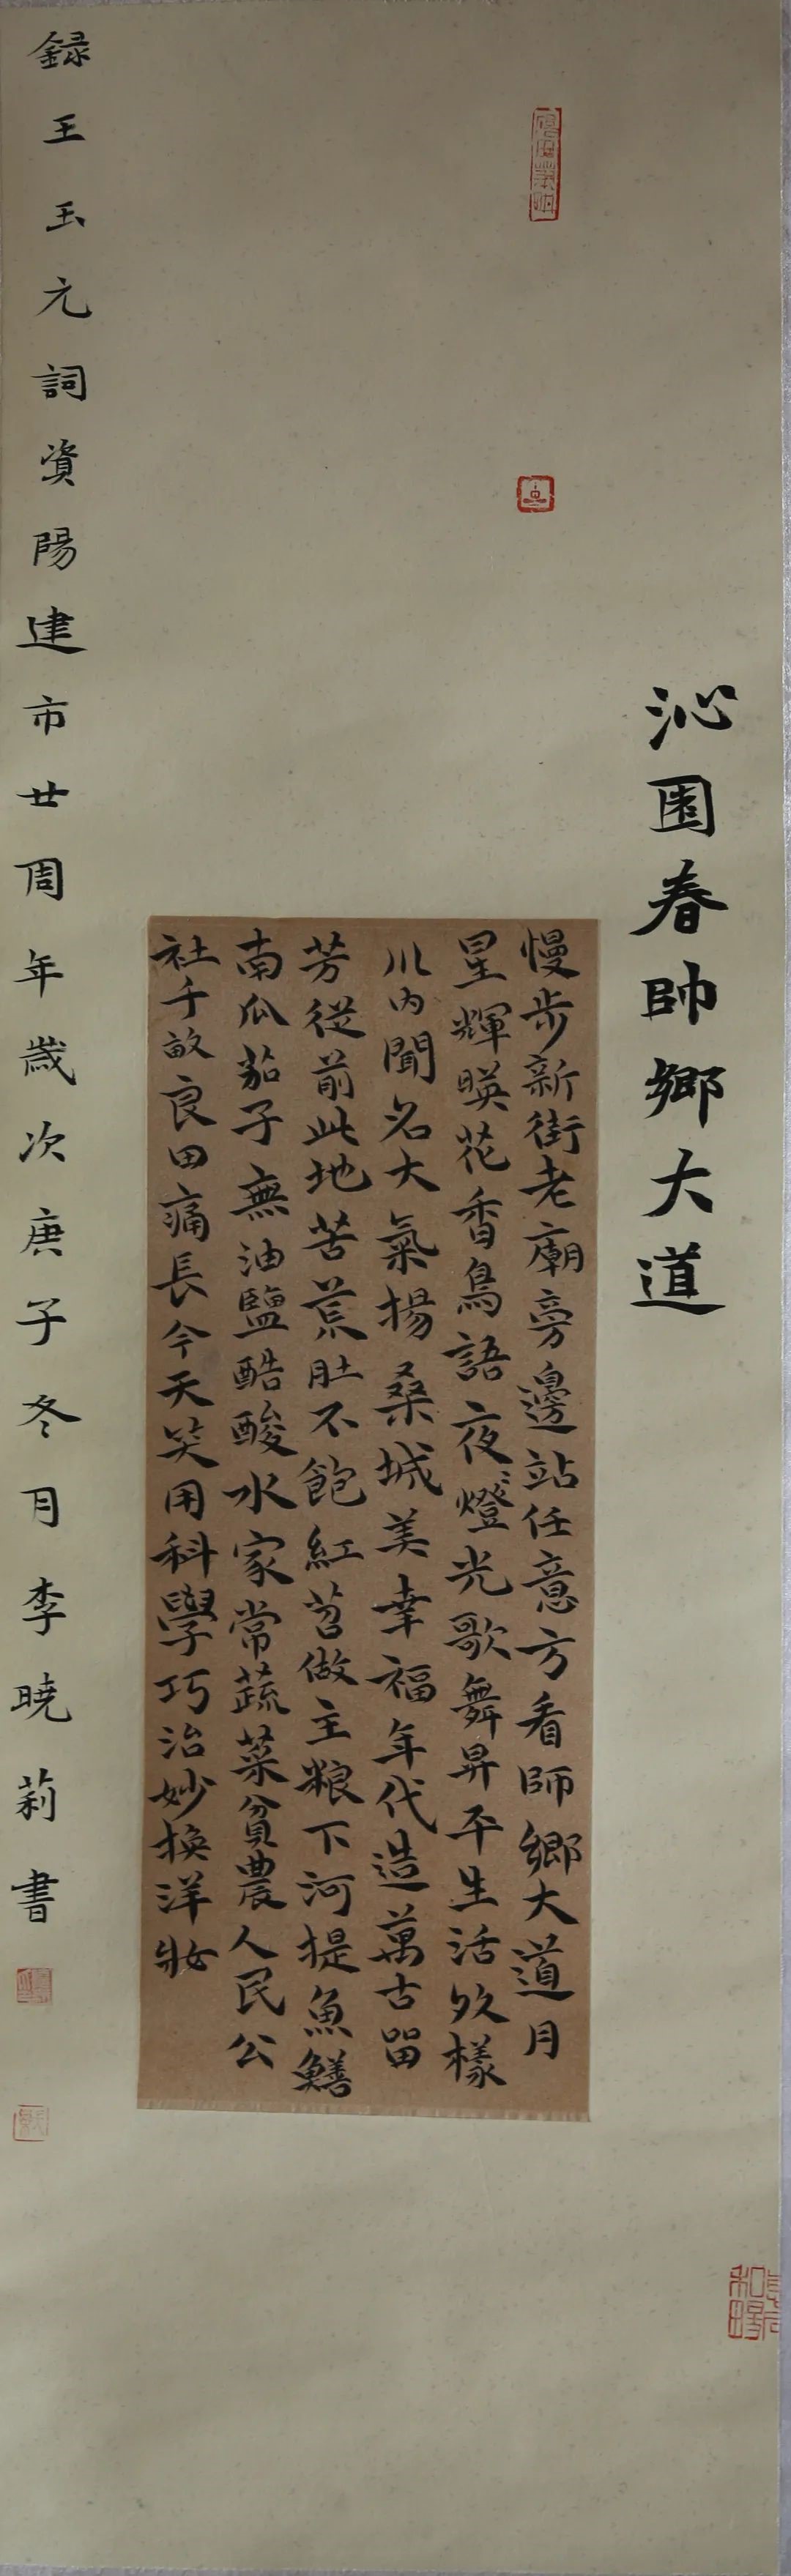 沁園春帥鄉大道
慢步新街老廟旁邊站任意方看帥鄉大道月
星輝暎花香鳥語夜燈光歌舞昇平生活效樣
川内聞名大氣揚桑城美幸福年代造萬古留
芳從前此地苦荒肚不飽紅苕做主粮下河提魚鱔
南瓜茄子無油鹽酷酸水家常蔬菜貧農人民公
社千畝良田痛長今天笑用科學巧治妙換洋妝
録王玉元詞資陽建市廿周年歲次庚子冬月李曉莉書